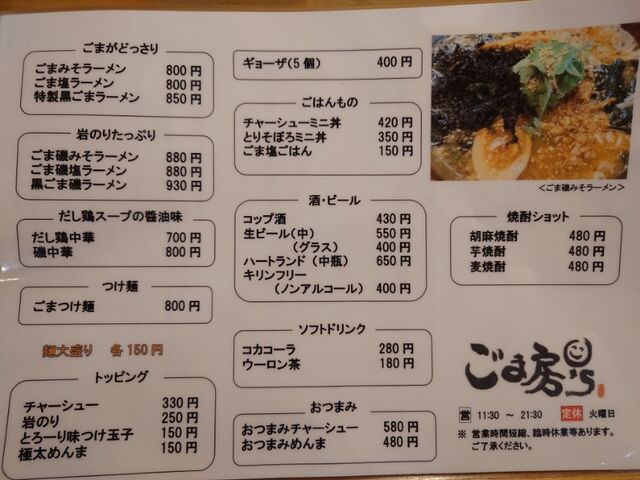 ごまがどっさり
ごまみそラーメン 800円
ごま塩ラーメン 800円
特製黒ごまラーメン 850円
岩のりたっぷり
ごま磯みそラーメン 880円
ごま磯塩ラーメン 880円
黒ごま磯ラーメン 930円
だし鶏スープの醤油味
だし鶏中華 700円
磯中華 800円
つけ麺
ごまつけ麺 800円
麺大盛り 各150円
トッピング
チャーシュー 330円
岩のり 250円
とろーり味つけ玉子 150円
極太めんま 150円
ギョーザ(5個) 400円
ごはんもの
チャーシューミニ丼 420円
とりそぼろミニ丼 350円
ごま塩ごはん 150円
酒・ビール
コップ酒 430円
生ビール(中) 550円
(グラス) 400円
ハートランド(中瓶) 650円
キリンフリー
(ノンアルコール) 400円
ソフトドリンク
コカコーラ 280円
ウーロン茶 180円
おつまみ
おつまみチャーシュー 580円
おつまみめんま 480円
＜ごま磯みそラーメン＞
焼酎ショット
胡麻焼酎 480円
芋焼酎 480円
麦焼酎 480円
ごま房's
営 11:30 ～ 21:30 定休 火曜日
※ 営業時間短縮、臨時休業等あります。
ご了承ください。